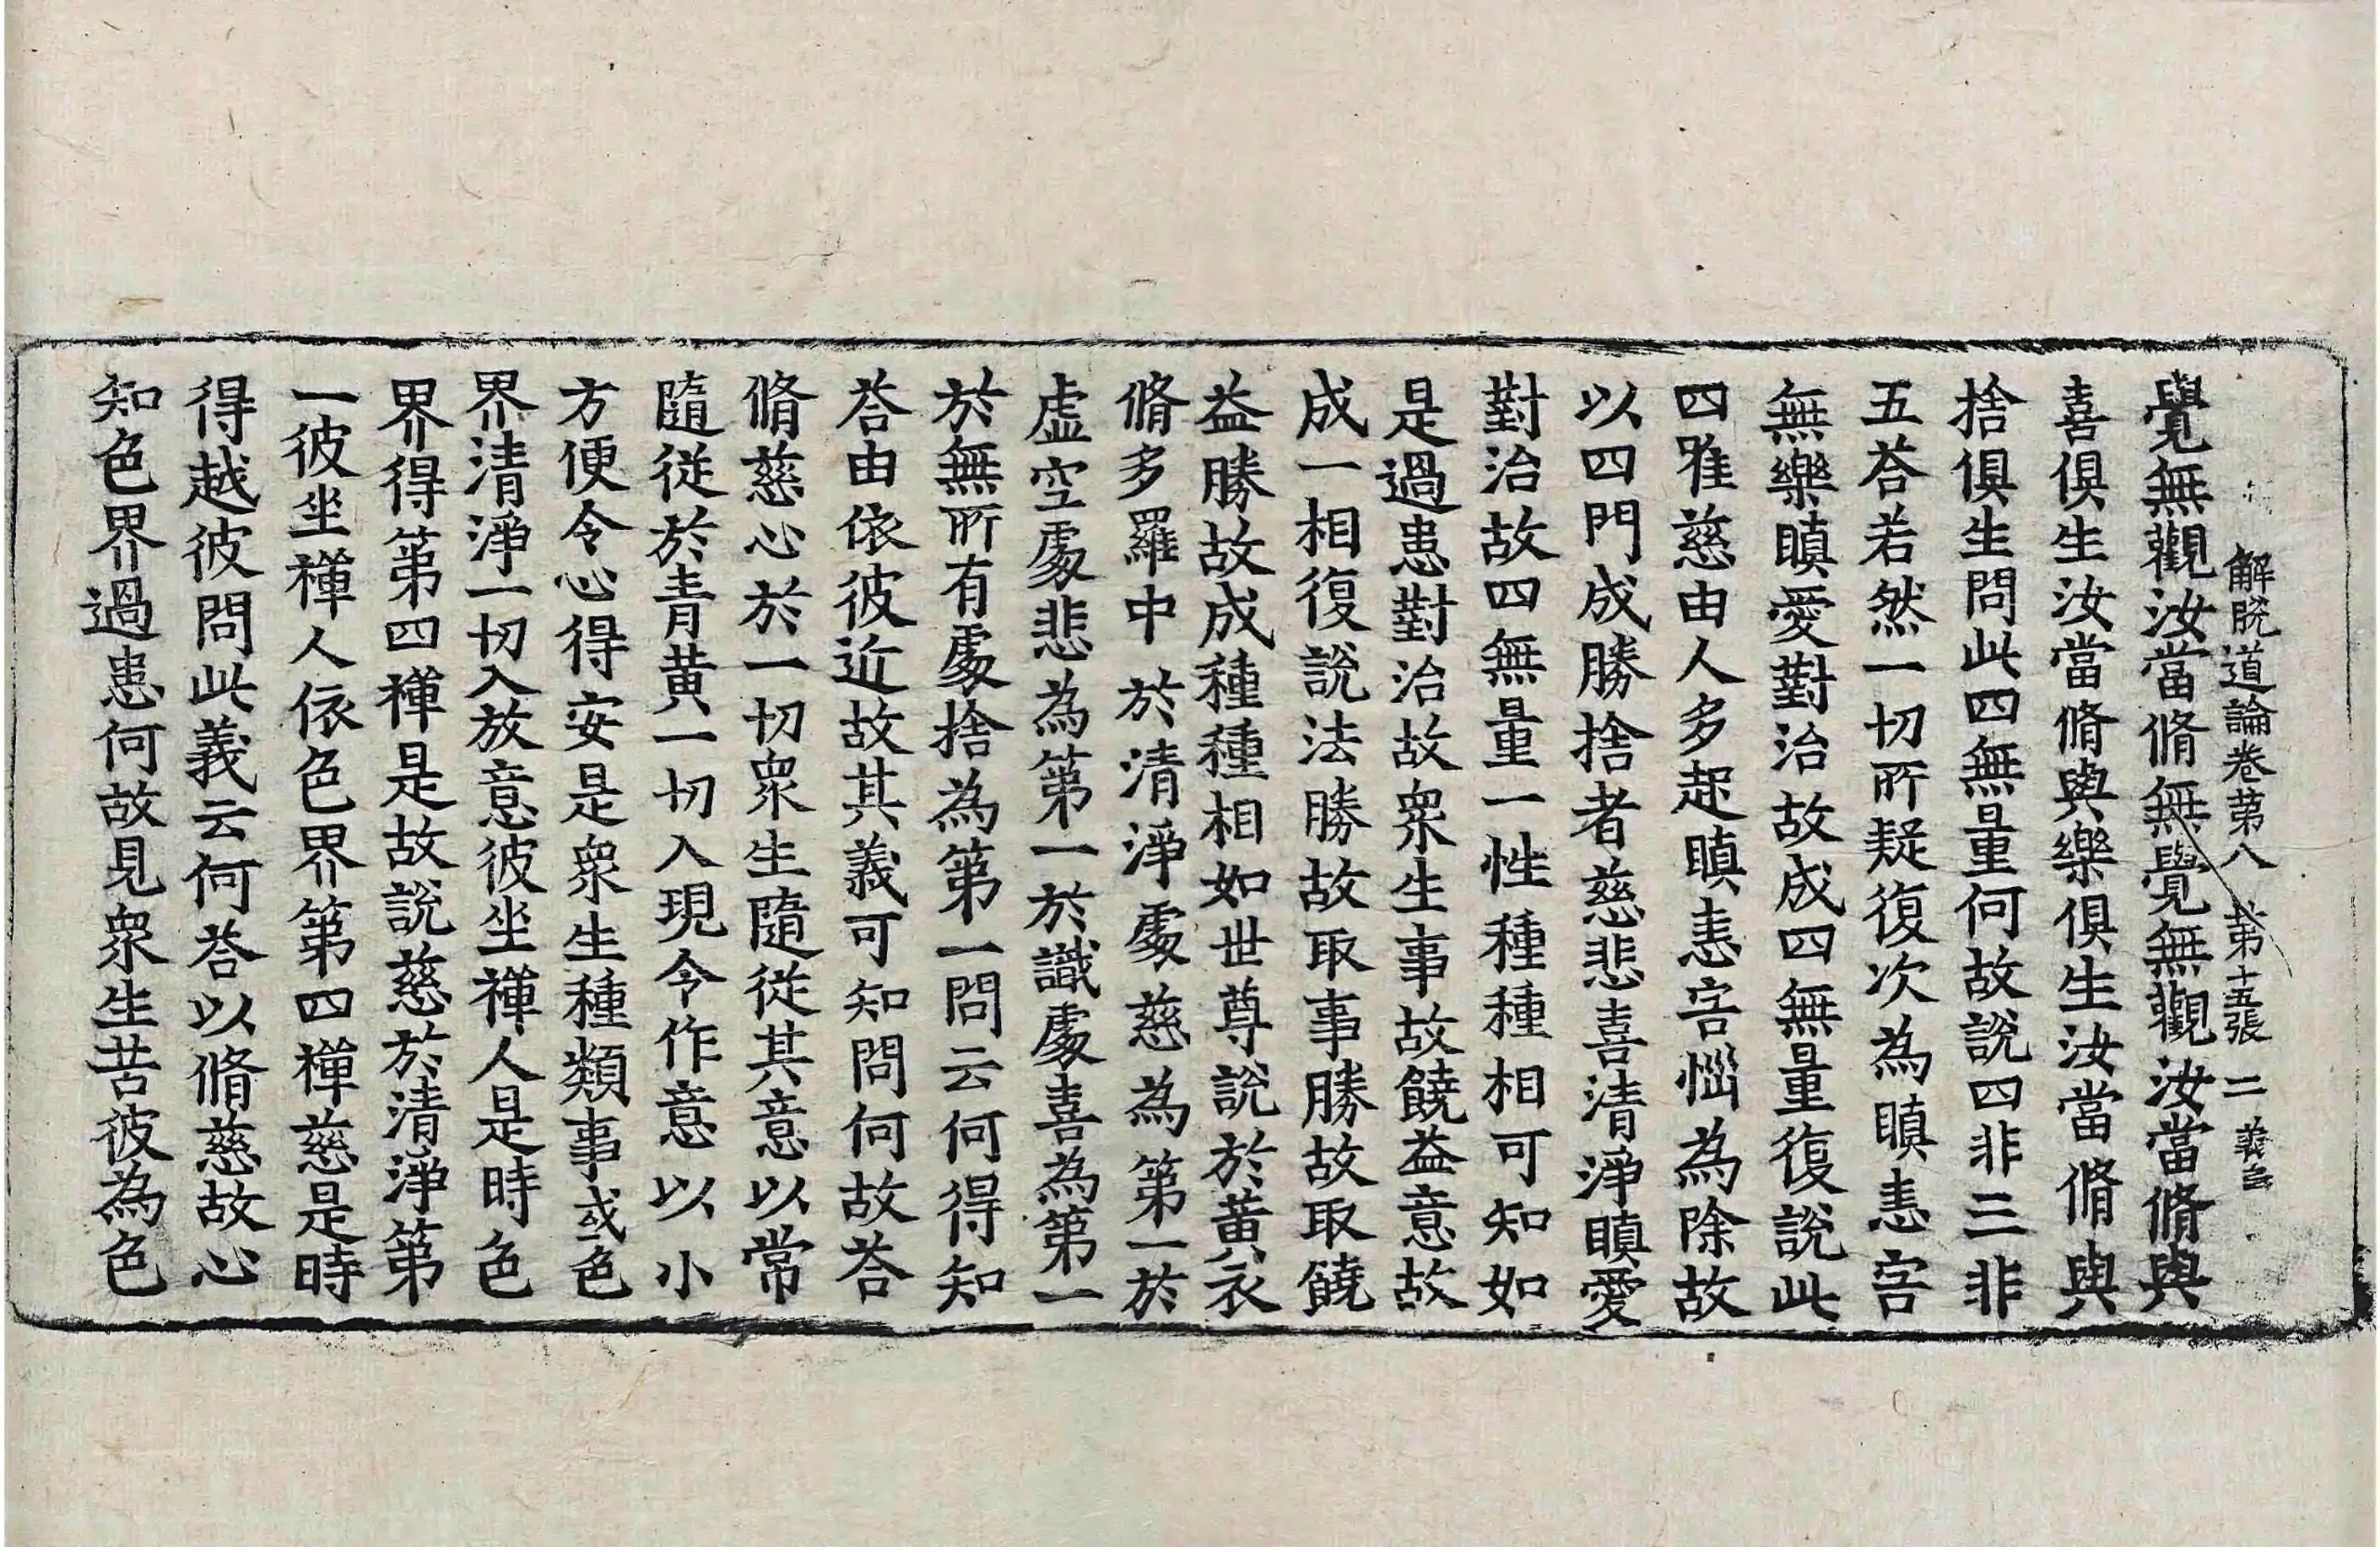 解脫道論卷第八 第十五張 二 義
覺無觀汝當脩無覺無觀汝當脩與
喜俱生汝當脩與樂俱生汝當脩與
捨俱生問此四無量何故說四非三非
五荅若然一切所疑復次為瞋恚害
無樂瞋愛對治故成四無量復說此
四唯慈由人多起瞋恚害惱為除故
以四門成勝捨者慈悲喜清淨瞋愛
對治故四無量一性種種相可知如
是過患對治故衆生事故饒益意故
成一相復說法勝故取事勝故取饒
益勝故成種種相如世尊說於黃衣
脩多羅中於清淨處慈為第一於
虛空處悲為第一於識處喜為第一
於無所有處捨為第一問云何得知
荅由依彼近故其義可知問何故荅
脩慈心於一切衆生隨從其意以常
隨從於青黃一切入現令作意以小
方便令心得安是衆生種類事或色
界清淨一切入放意彼坐禪人是時色
界得第四禪是故說慈於清淨第
一彼坐禪人依色界第四禪慈是時
得越彼問此義云何荅以脩慈故心
知色界過患何故見衆生苦彼為色